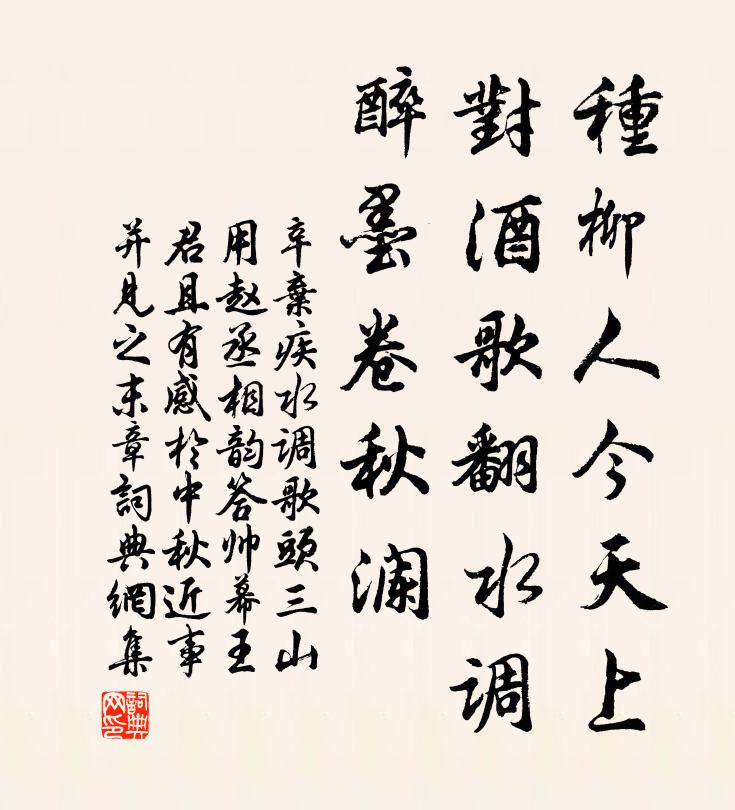 種柳人今天上
對酒歌翻水调
醉墨卷秋澜
辛棄疾水调歌頭三山
用赵丞相韵答帅幕王
君且有感於中秋近事
并見之末章詞典網集
詞典网印